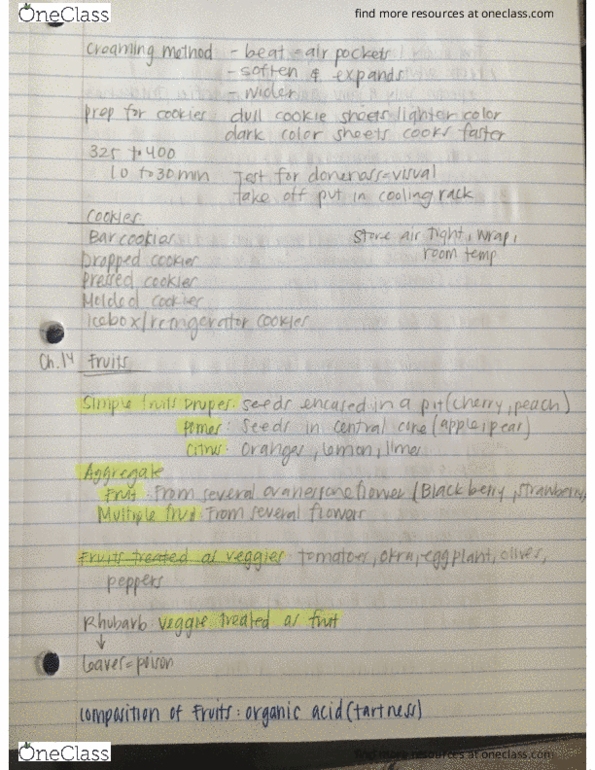 OneClass
find more resources at oneclass.com
Creaming method - beat = air pockets
- soften & expands
- wider
prep for cookies dull cookie sheets lighter color
dark color sheets cooks faster
325 to 400
10 to 30 min Test for doneness = visual
take off put in cooling rack
Cookies
Bar cookies store air tight, wrap,
Dropped cookies room temp
Pressed cookies
Molded cookies
Icebox/refrigerator cookies
Ch. 14 Fruits
Simple fruits Drupes: seeds encased in a pit (cherry, peach)
Pomes: Seeds in central core (apple, pear)
Citrus: oranges, lemon, limes
Aggregate
Fruit: From several ovaries one flower (Blackberry, strawberry,
Multiple fruit: From several flowers
Fruits treated as veggies: tomatoes, okra, eggplant, olives,
peppers
Rhubarb: veggie treated as fruit
↓
leaves = poison
composition of fruits: organic acid (tartness)
OneClass
find more resources at oneclass.com